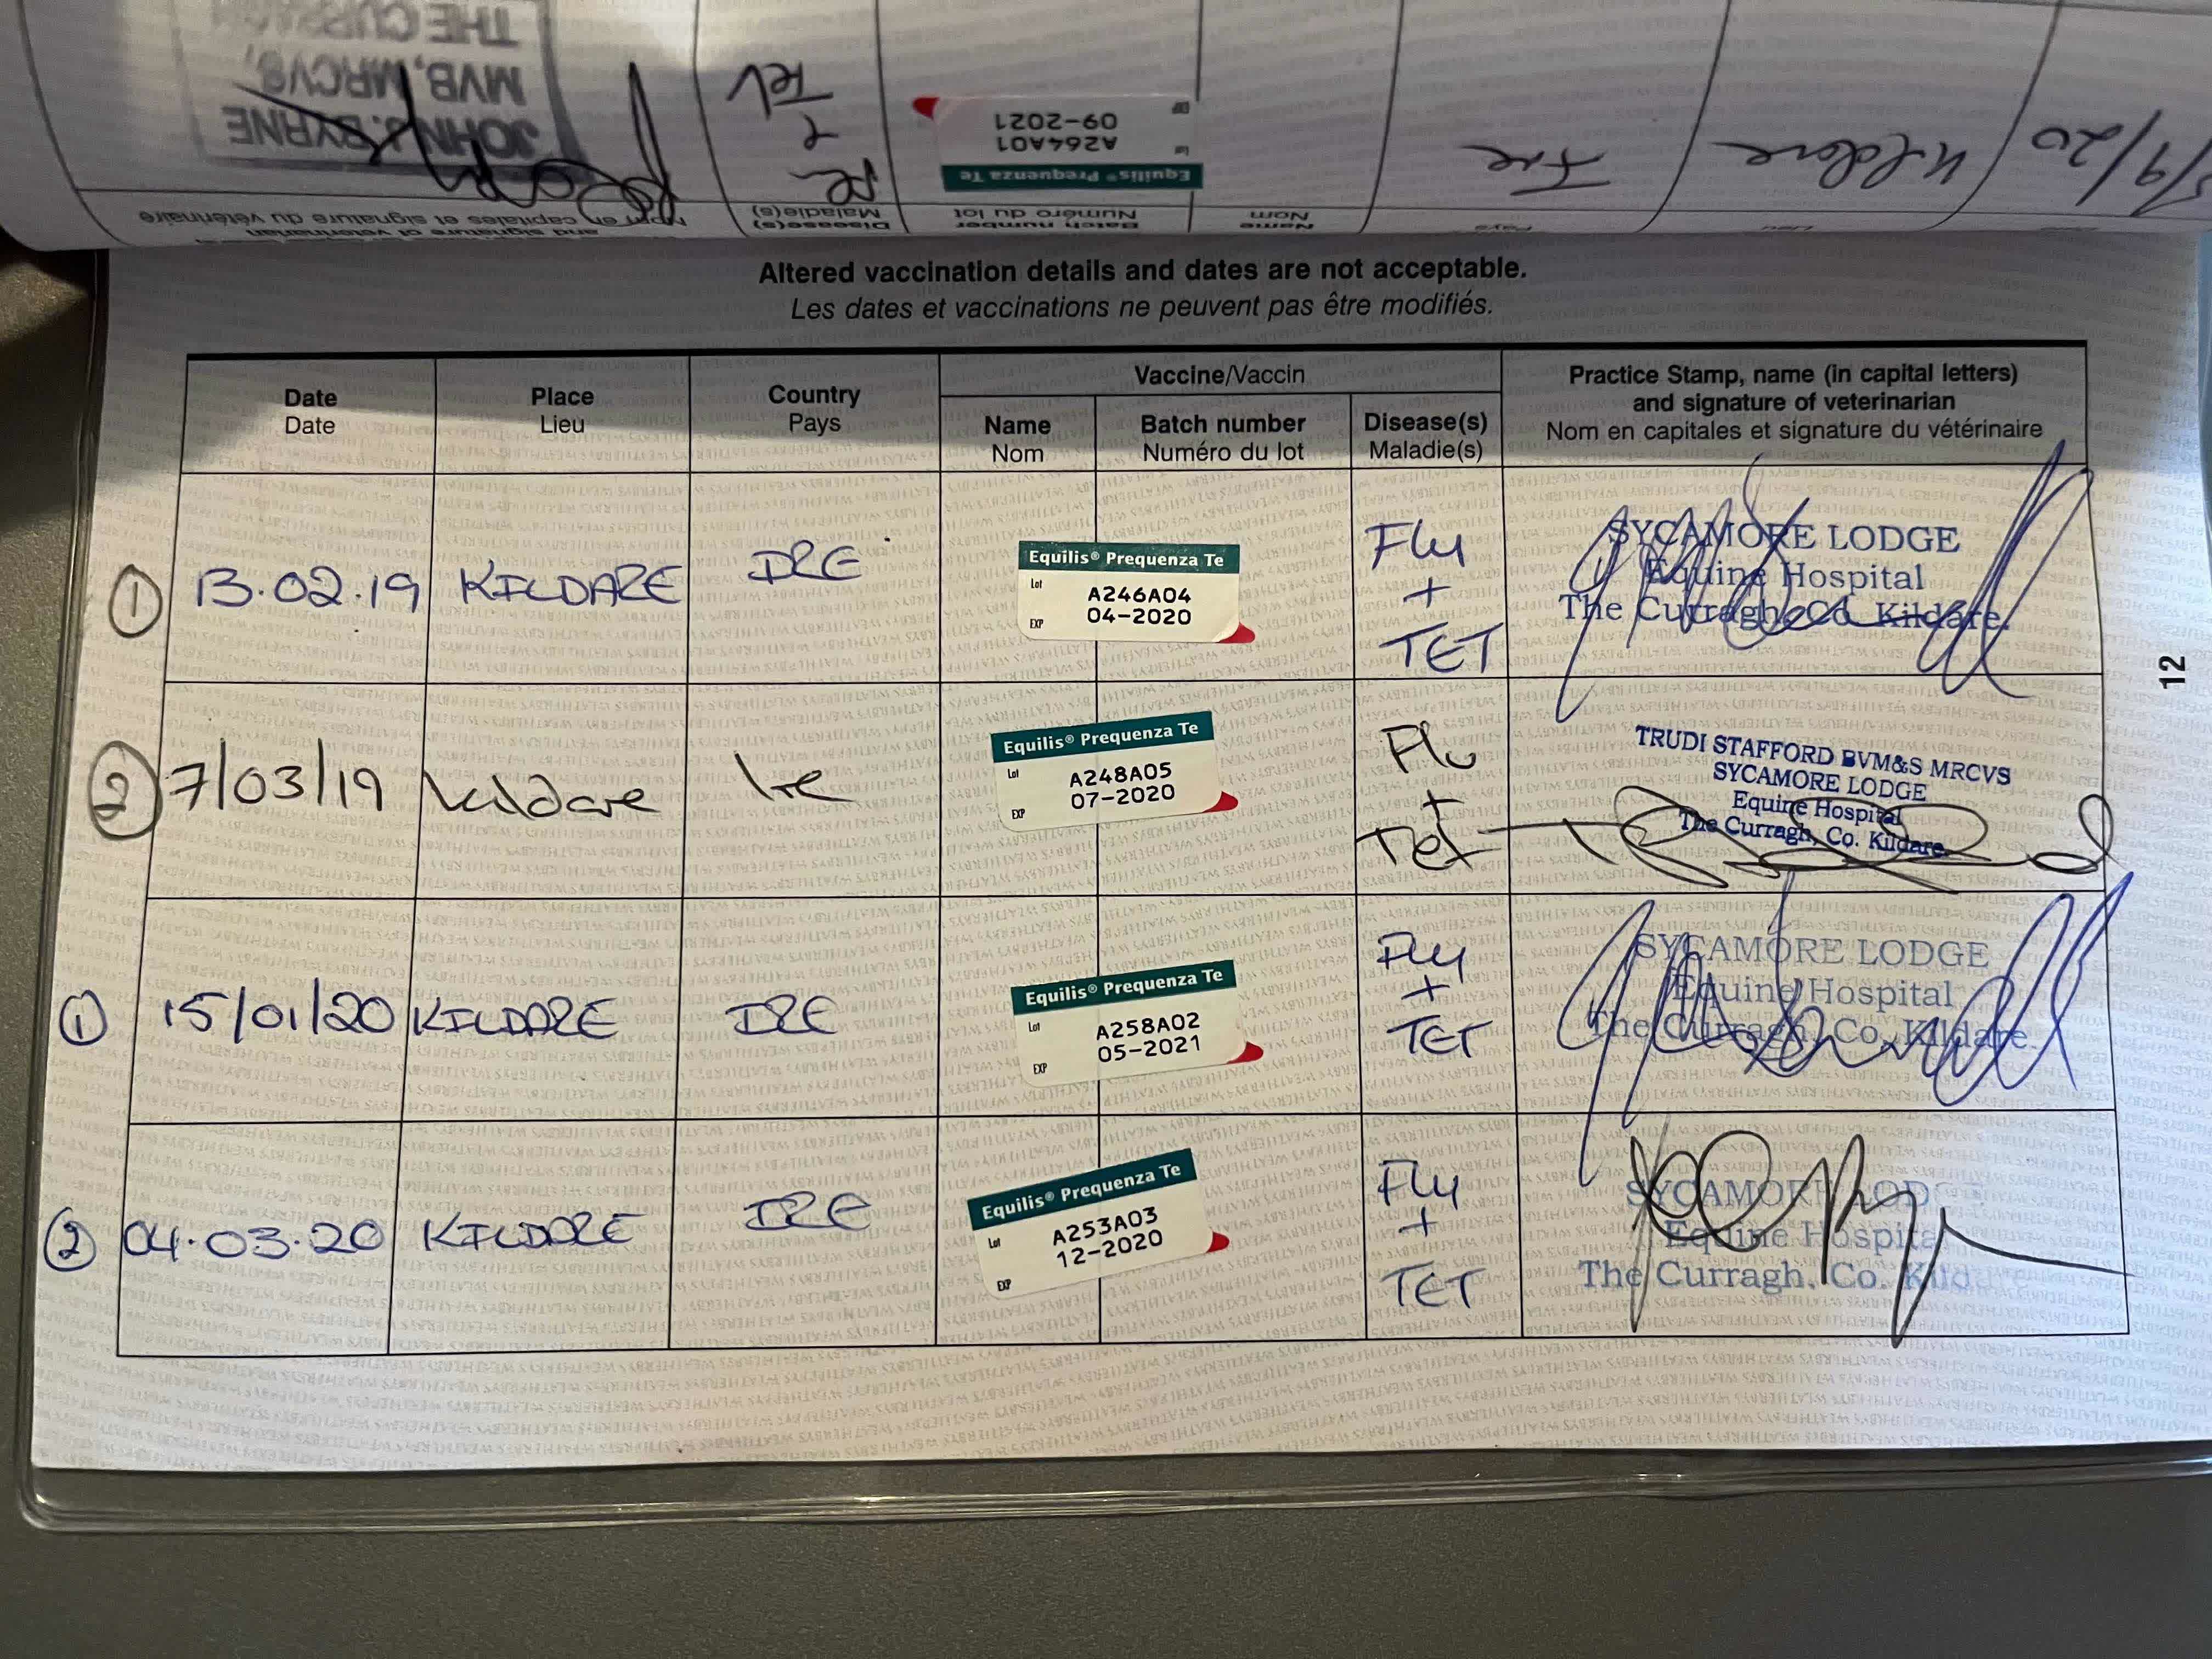 THE CURRAGH
MVB, MRCVS,
JOHN J. BYRNE
Tet
09-2021
A264A01
Lot
EXP
Equilis® Prequenza Te
Ire
Kildare
/9/20
Nom en capitales et signature du vétérinaire
and signature of veterinarian
Disease(s)
Maladie(s)
Batch number
Numéro du lot
Name
Nom
Pays
Lieu
Altered vaccination details and dates are not acceptable.
Les dates et vaccinations ne peuvent pas être modifiés.
Date
Date
Place
Lieu
Country
Pays
Vaccine/Vaccin
Name
Nom
Batch number
Numéro du lot
Disease(s)
Maladie(s)
Practice Stamp, name (in capital letters)
and signature of veterinarian
Nom en capitales et signature du vétérinaire
① 13.02.19 KILDARE IRE
Equilis® Prequenza Te
Lot A246A04
EXP 04-2020
Flu
+
TET
SYCAMORE LODGE
Equine Hospital
The Curragh, Co. Kildare.
② 7/03/19 Kildare Ire
Equilis® Prequenza Te
Lot A248A05
EXP 07-2020
Flu
+
Tet
TRUDI STAFFORD BVM&S MRCVS
SYCAMORE LODGE
Equine Hospital
The Curragh, Co. Kildare
① 15/01/20 KILDARE IRE
Equilis® Prequenza Te
Lot A258A02
EXP 05-2021
Flu
+
TET
SYCAMORE LODGE
Equine Hospital
The Curragh, Co. Kildare.
② 04.03.20 KILDARE IRE
Equilis® Prequenza Te
Lot A253A03
EXP 12-2020
Flu
+
TET
SYCAMORE LODGE
Equine Hospital
The Curragh, Co. Kildare
12